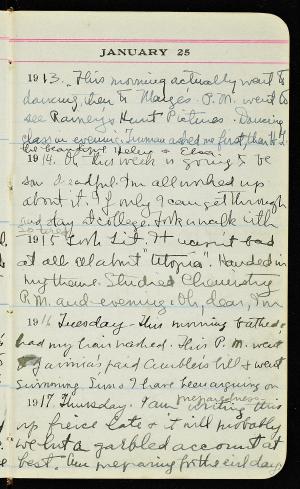 JANUARY 25
1913. This morning actually went to
dancing, then to Marge's. P.M. went to
see Rainey's Hunt Pictures. Dancing
class in evening. Truman asked me first then H.S.
1914. Oh this week is going to be
so dreadful. I'm all worked up
about it. If only I can get through
and stay at college. Took a walk with
1915 Took Lit. It wasn't bad
at all all about "Utopia". Handed in
my theme. Studied Chemistry
P.M. and evening. Oh, dear, I'm
so tired
1916 Tuesday - This morning bathed &
had my hair washed. This P.M. went
paid bill & went
swimming. I have been arguing on
preparedness
1917 Thursday. I am writing this
up fierce late & it will probably
be but a garbled account at
best. Am preparing for the evil day